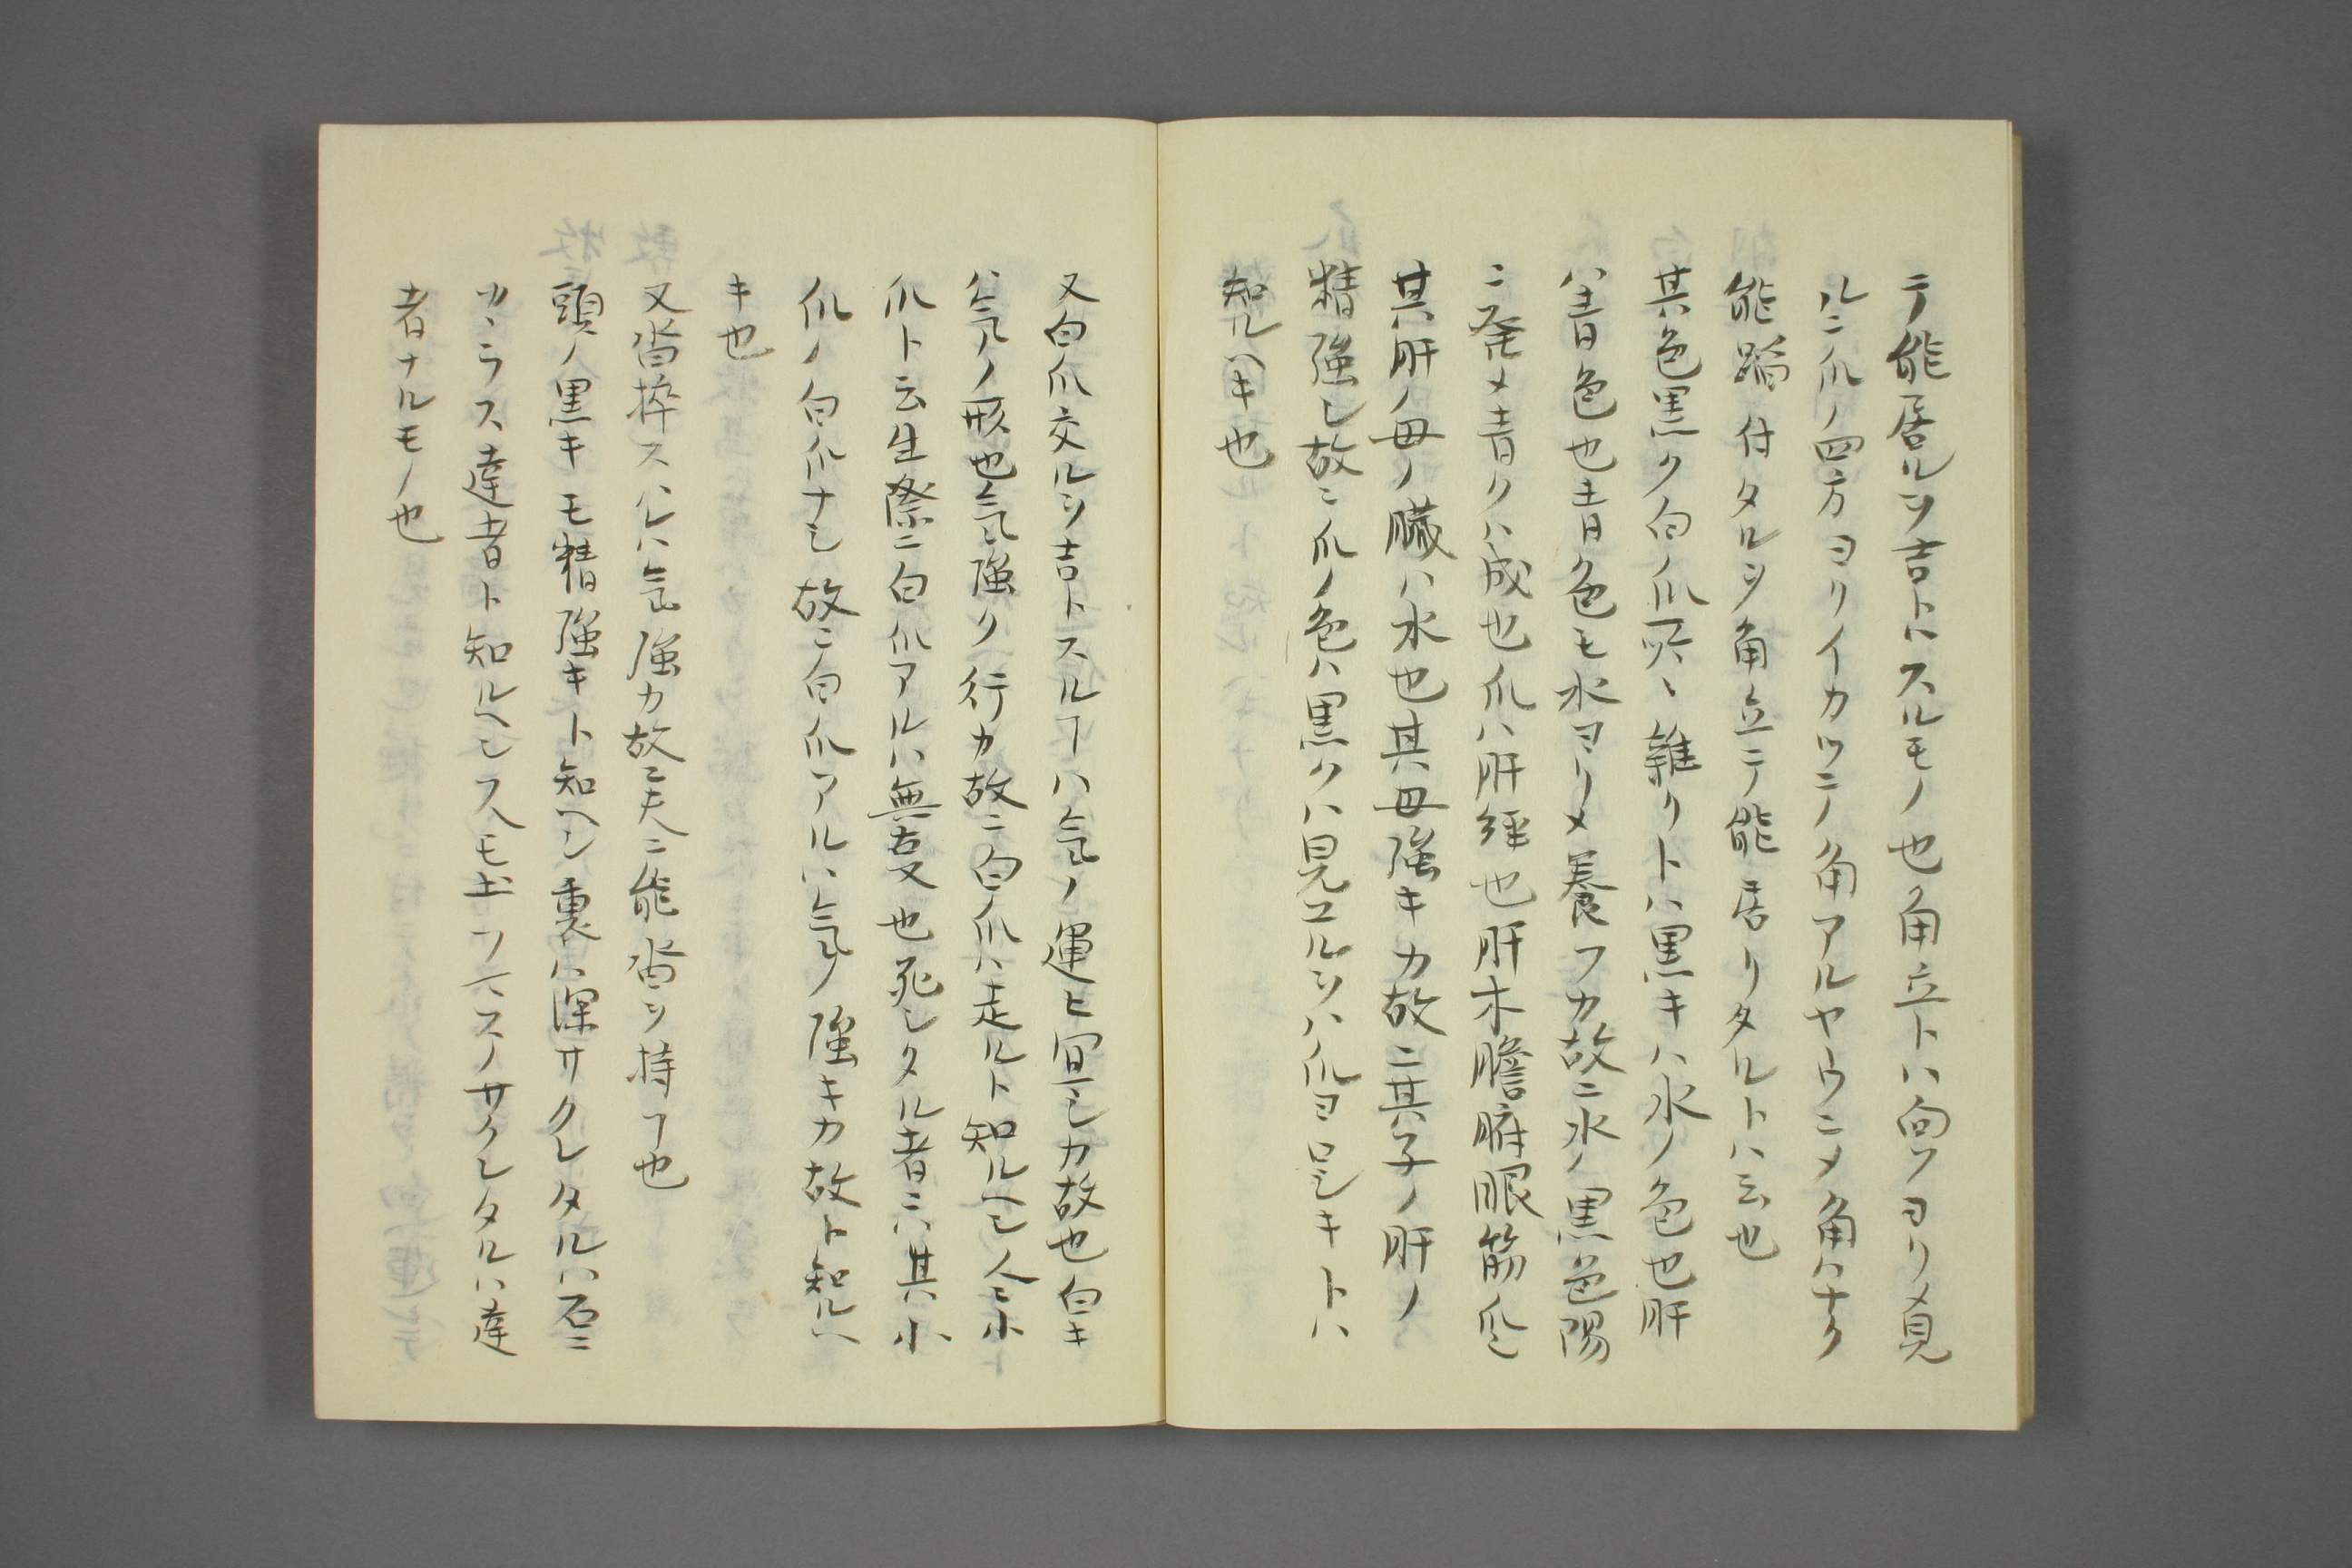 テ能居ルヲ吉トハスルモノ也角立トハ向フヨリ見
ルニ爪ノ四方ヨリイカツニテ角アルヤウニメ角ハナク
能踏付タルヲ角立テ能居リタルトハ云也
其色黒ク白ノ爪所〻雑リトハ黒キハ水ノ色也肝
ハ青色也青色モ水ヨリメ養フカ故ニ水ノ黒色陽
ニ発メ青クハ成也爪ハ肝経也肝木膽腑眼筋爪
其肝ノ母ノ臓ハ水也其母強キカ故ニ其子ノ肝ノ
精強シ故ニ爪ノ色ハ黒クハ見エルソハ爪ヨロシキトハ
知ルヘキ也
又白爪交ルヲ吉トスルヿハ気ノ運ヒ宜シカ故也白キ
ハ気ノ形也気強ク行カ故ニ白ノ爪ハ走ルト知ルヘシ人ニ小
爪ト云生際ニ白爪アルハ無㕝又也死シタル者ニハ其小
爪ノ白爪ナシ故ニ白爪アルハ気ノ強キカ故ト知ルヘ
キ也
又沓捽スルハ気強カ故夫ニ能沓ヲ持フ也
頭ノ黒キモ精強キト知ヘシ裏ハ深サクレタルハ石ニ
カラス達者ト知ルヘシスモ土フマスノサクレタルハ達
者ナルモノ也